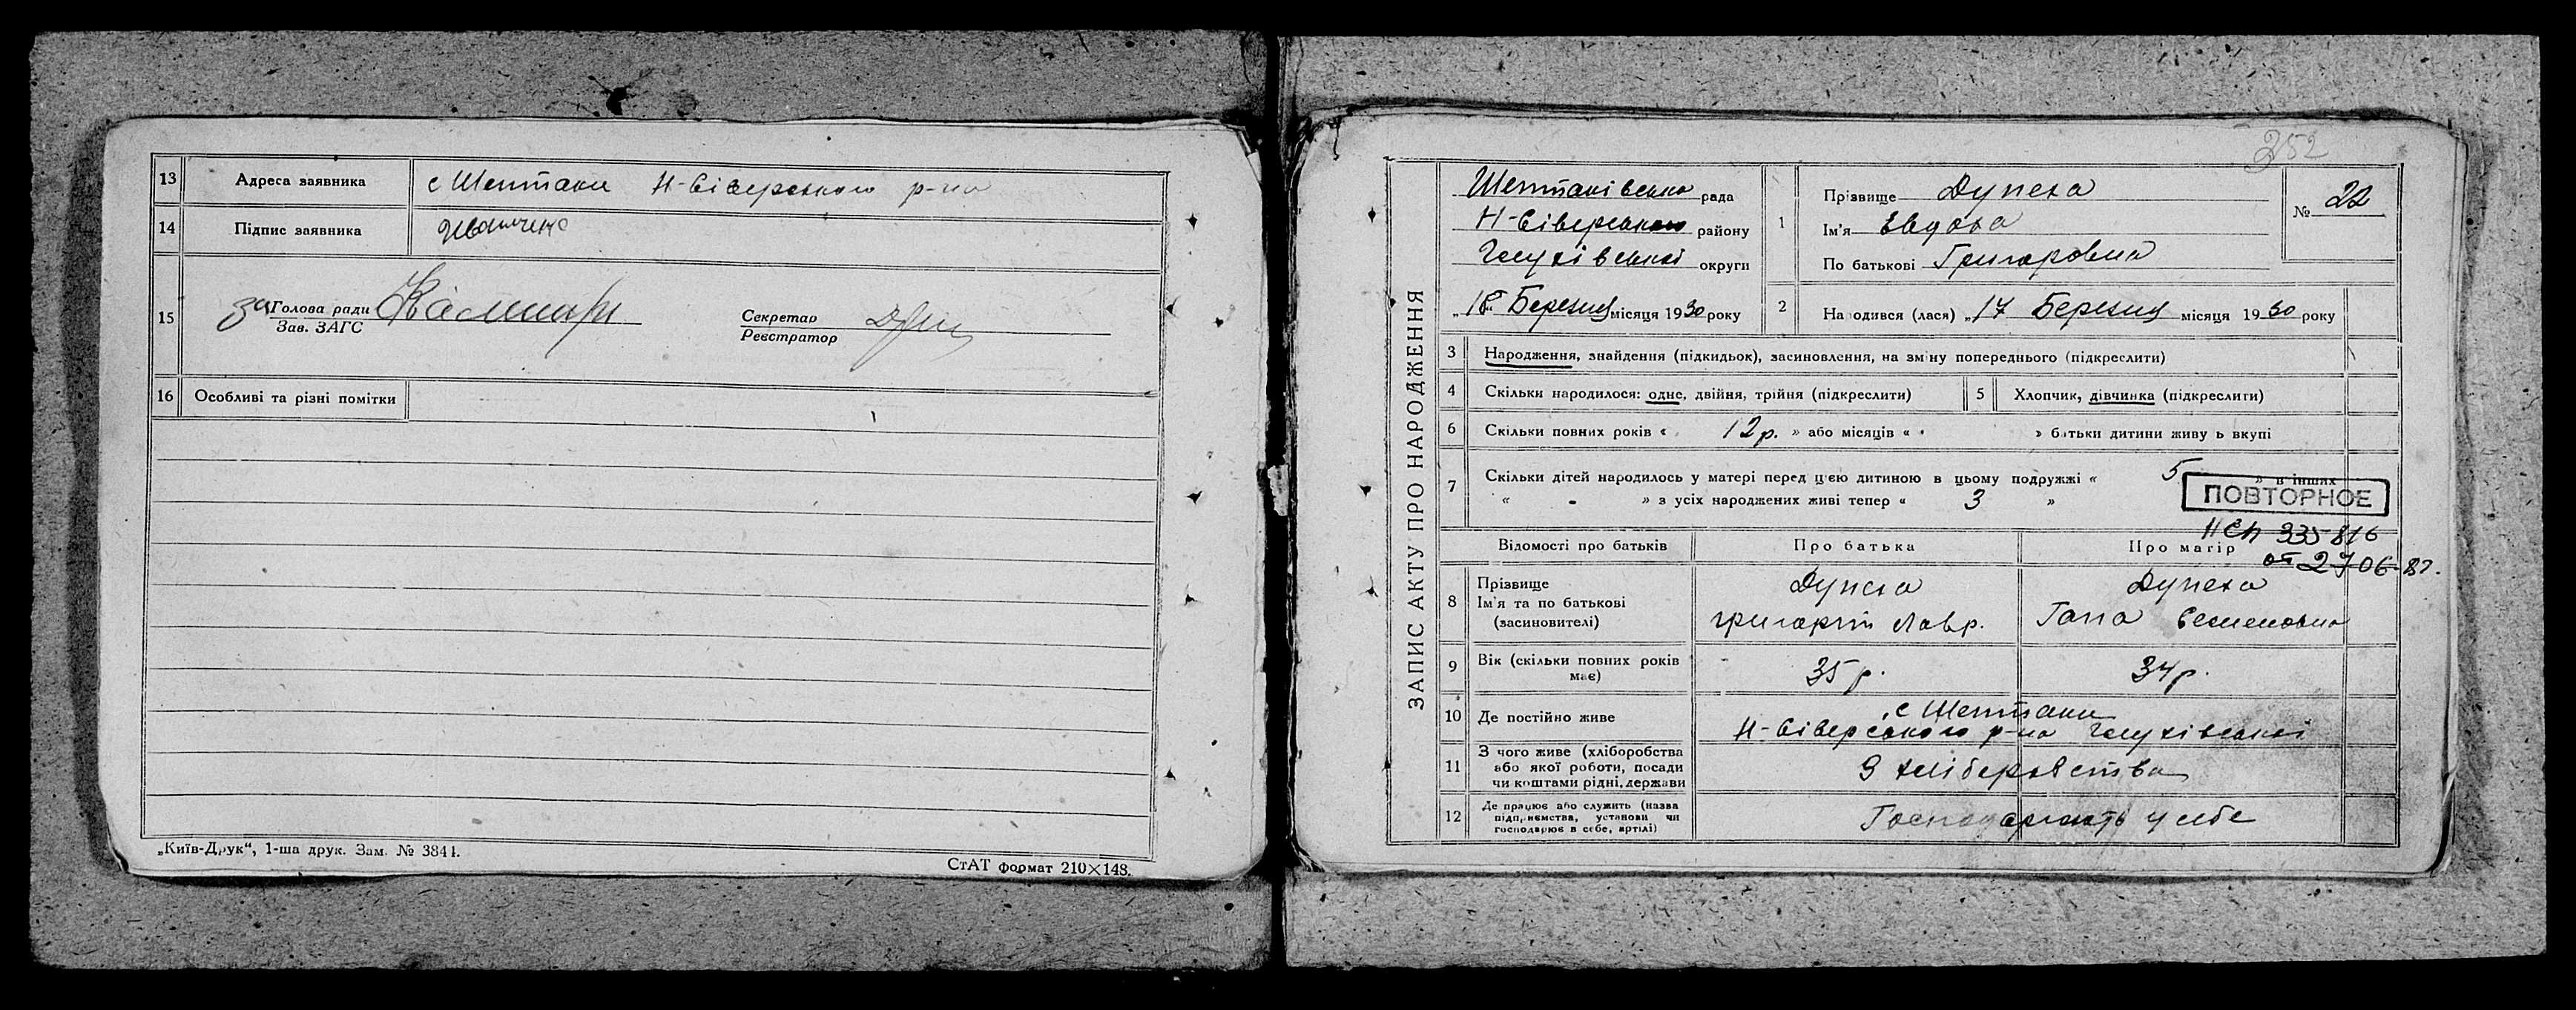 13 Адреса заявника с Шептаки Н-Сіверського р-на
14 Підпис заявника
15 за Голова ради Зав. ЗАГС Секретар Реєстратор
16 Особливі та різні помітки
„Київ-Друк“, 1-ша друк. Зам. № 3841.
СтАТ формат 210×148.
352
ЗАПИС АКТУ ПРО НАРОДЖЕННЯ
Шептаківська рада
Н-Сіверського району
Глухівської округи
„18“ Березня місяця 1930 року
1 Прізвище Дупеха
Ім'я Евдоха
По батькові Григоровна
№ 22
2 Народився (лася) „17 Березня місяця 1930 року
3 Народження, знайдення (підкидьок), засиновлення, на зміну попереднього (підкреслити)
4 Скільки народилося: одне, двійня, трійня (підкреслити) 5 Хлопчик, дівчинка (підкреслити)
6 Скільки повних років « 12 р. » або місяців « » батьки дитини живуть вкупі
7 Скільки дітей народилось у матері перед цією дитиною в цьому подружжі « 5 » в інших
« - » з усіх народжених живі тепер « 3 »
ПОВТОРНОЕ
335816
от 27 06-87.
Відомості про батьків Про батька Про матір
8 Прізвище Ім'я та по батькові (засиновителі)
Дупеха Дупеха
Григорій Лавр. Гапа Семеновна
9 Вік (скільки повних років має) 35 р. 34 р.
10 Де постійно живе с Шептаки
Н-Сіверського р-на Глухівської
11 З чого живе (хліборобства або якої роботи, посади чи коштами рідні, держави З хліборобства
12 Де працює або служить (назва підприємства, установи чи господарює в себе, артілі) Господарюють у себе